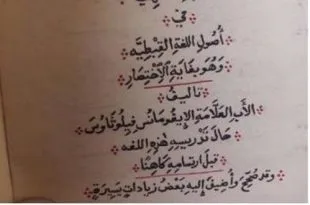 في
أُصُولِ اللغَةِ القِبْطِيَّه
وَهُوَ بِغَايَةِ الِاخْتِصَارِ
تأليفُ
الأَبِ العَلَّامَةِ الإِيغُومَانُسِ فِيلُوثَاوُسَ
حَالَ تَدْرِيسِهِ هٰذِهِ اللغه
قبلَ ارتِسَامِهِ كَاهِنًا
وقد صُحِّحَ وَأُضِيفَ إِلَيهِ بَعْضُ زِيَادَاتٍ يَسِيرَةٍ